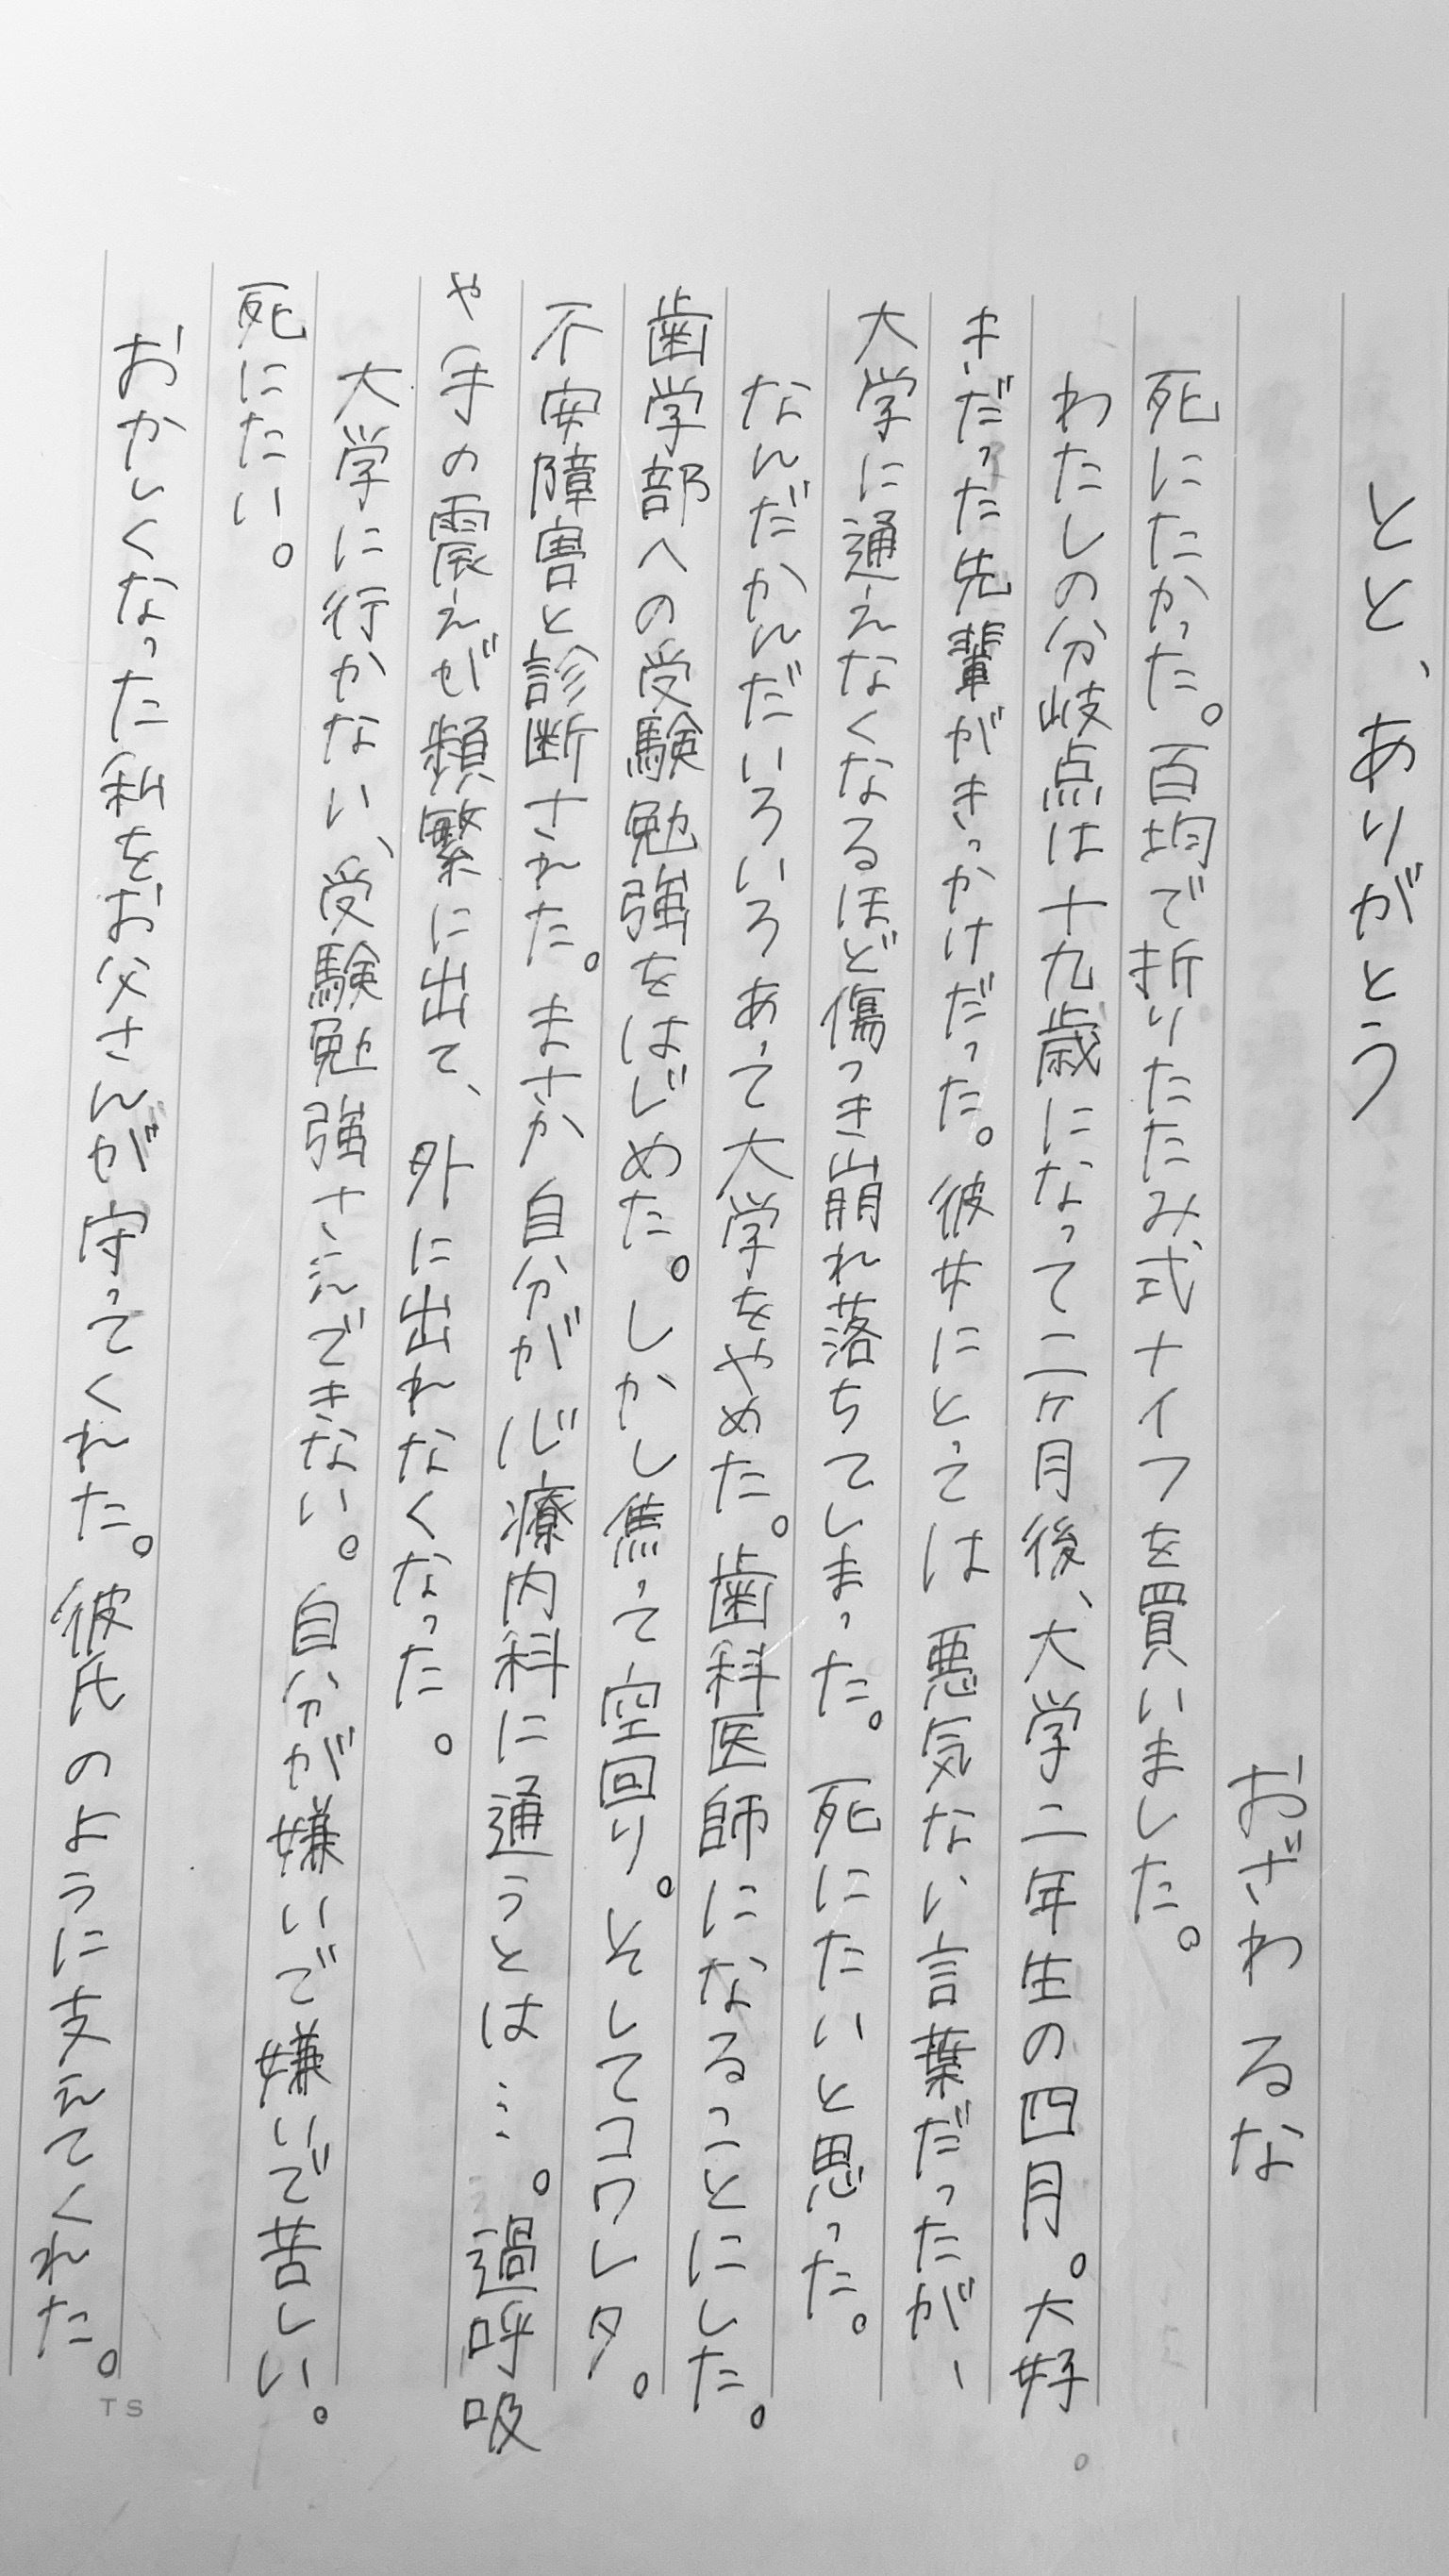 とと、ありがとう
おざわ るな
死にたかった。百均で折りたたみ式ナイフを買いました。
わたしの分岐点は十九歳になって二ヶ月後、大学二年生の四月。大好
きだった先輩がきっかけだった。彼女にとっては悪気ない言葉だったが、
大学に通えなくなるほど傷つき崩れ落ちてしまった。死にたいと思った。
なんだかんだいろいろあって大学をやめた。歯科医師になることにした。
歯学部への受験勉強をはじめた。しかし焦って空回り。そしてコワレタ。
不安障害と診断された。まさか自分が心療内科に通うとは…。過呼吸
や手の震えが頻繁に出て、外に出れなくなった。
大学に行かない、受験勉強さえできない。自分が嫌いで嫌いで苦しい。
死にたい。
おかしくなった私をお父さんが守ってくれた。彼氏のように支えてくれた。
TS